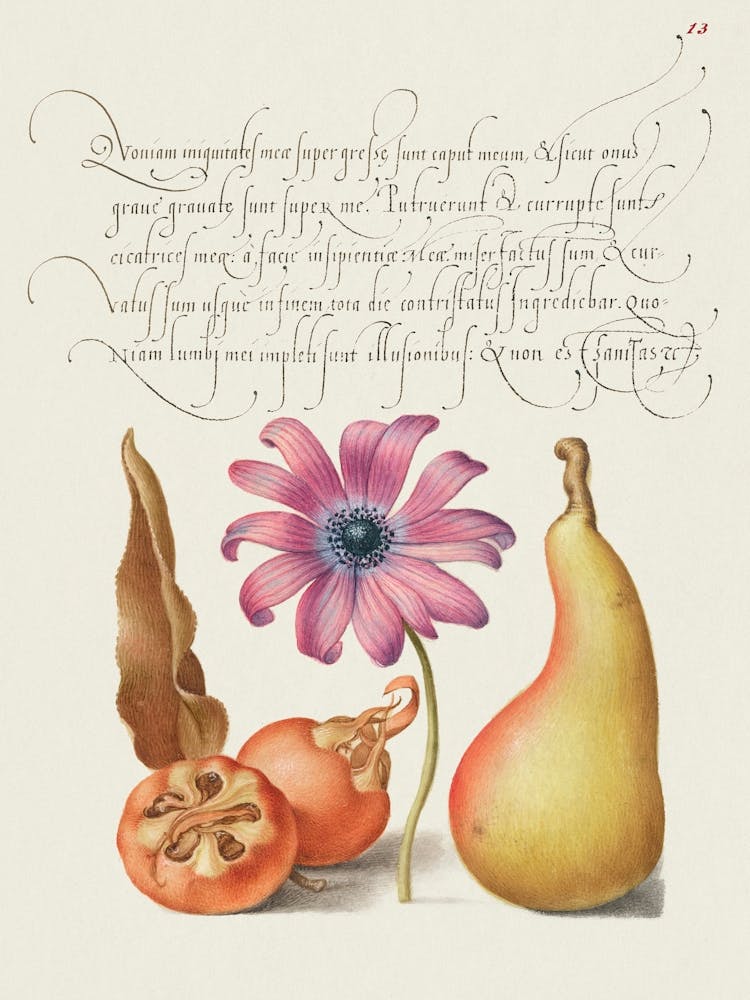 13
Quoniam iniquitates meæ supergresse sunt caput meum, & sicut onus
graue grauate sunt super me. Putruerunt & currupte sunt
cicatrices meæ: a facie insipientiæ Meæ. miser factus sum, & cur-
vatus sum usque in finem tota die contristatus Ingrediebar. Quo-
Niam lumbi mei impleti sunt illusionibus: & non est sanitas &c